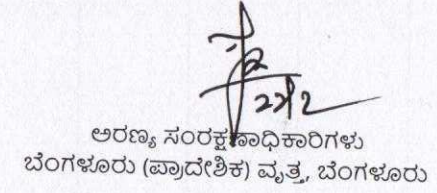 22/2
ಅರಣ್ಯ ಸಂರಕ್ಷಣಾಧಿಕಾರಿಗಳು
ಬೆಂಗಳೂರು (ಪ್ರಾದೇಶಿಕ) ವೃತ್ತ, ಬೆಂಗಳೂರು